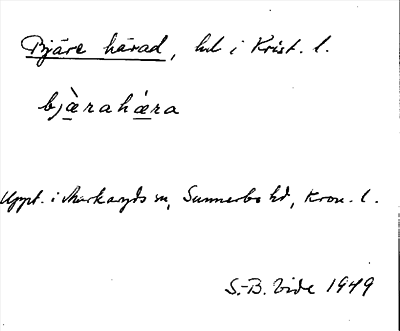 Bjäre härad, hd i Krist. l.
bjæ̀rahǽra
Uppt. i Markaryds sn, Sunnerbo hd, Kron. l.
S.-B. Vide 1949